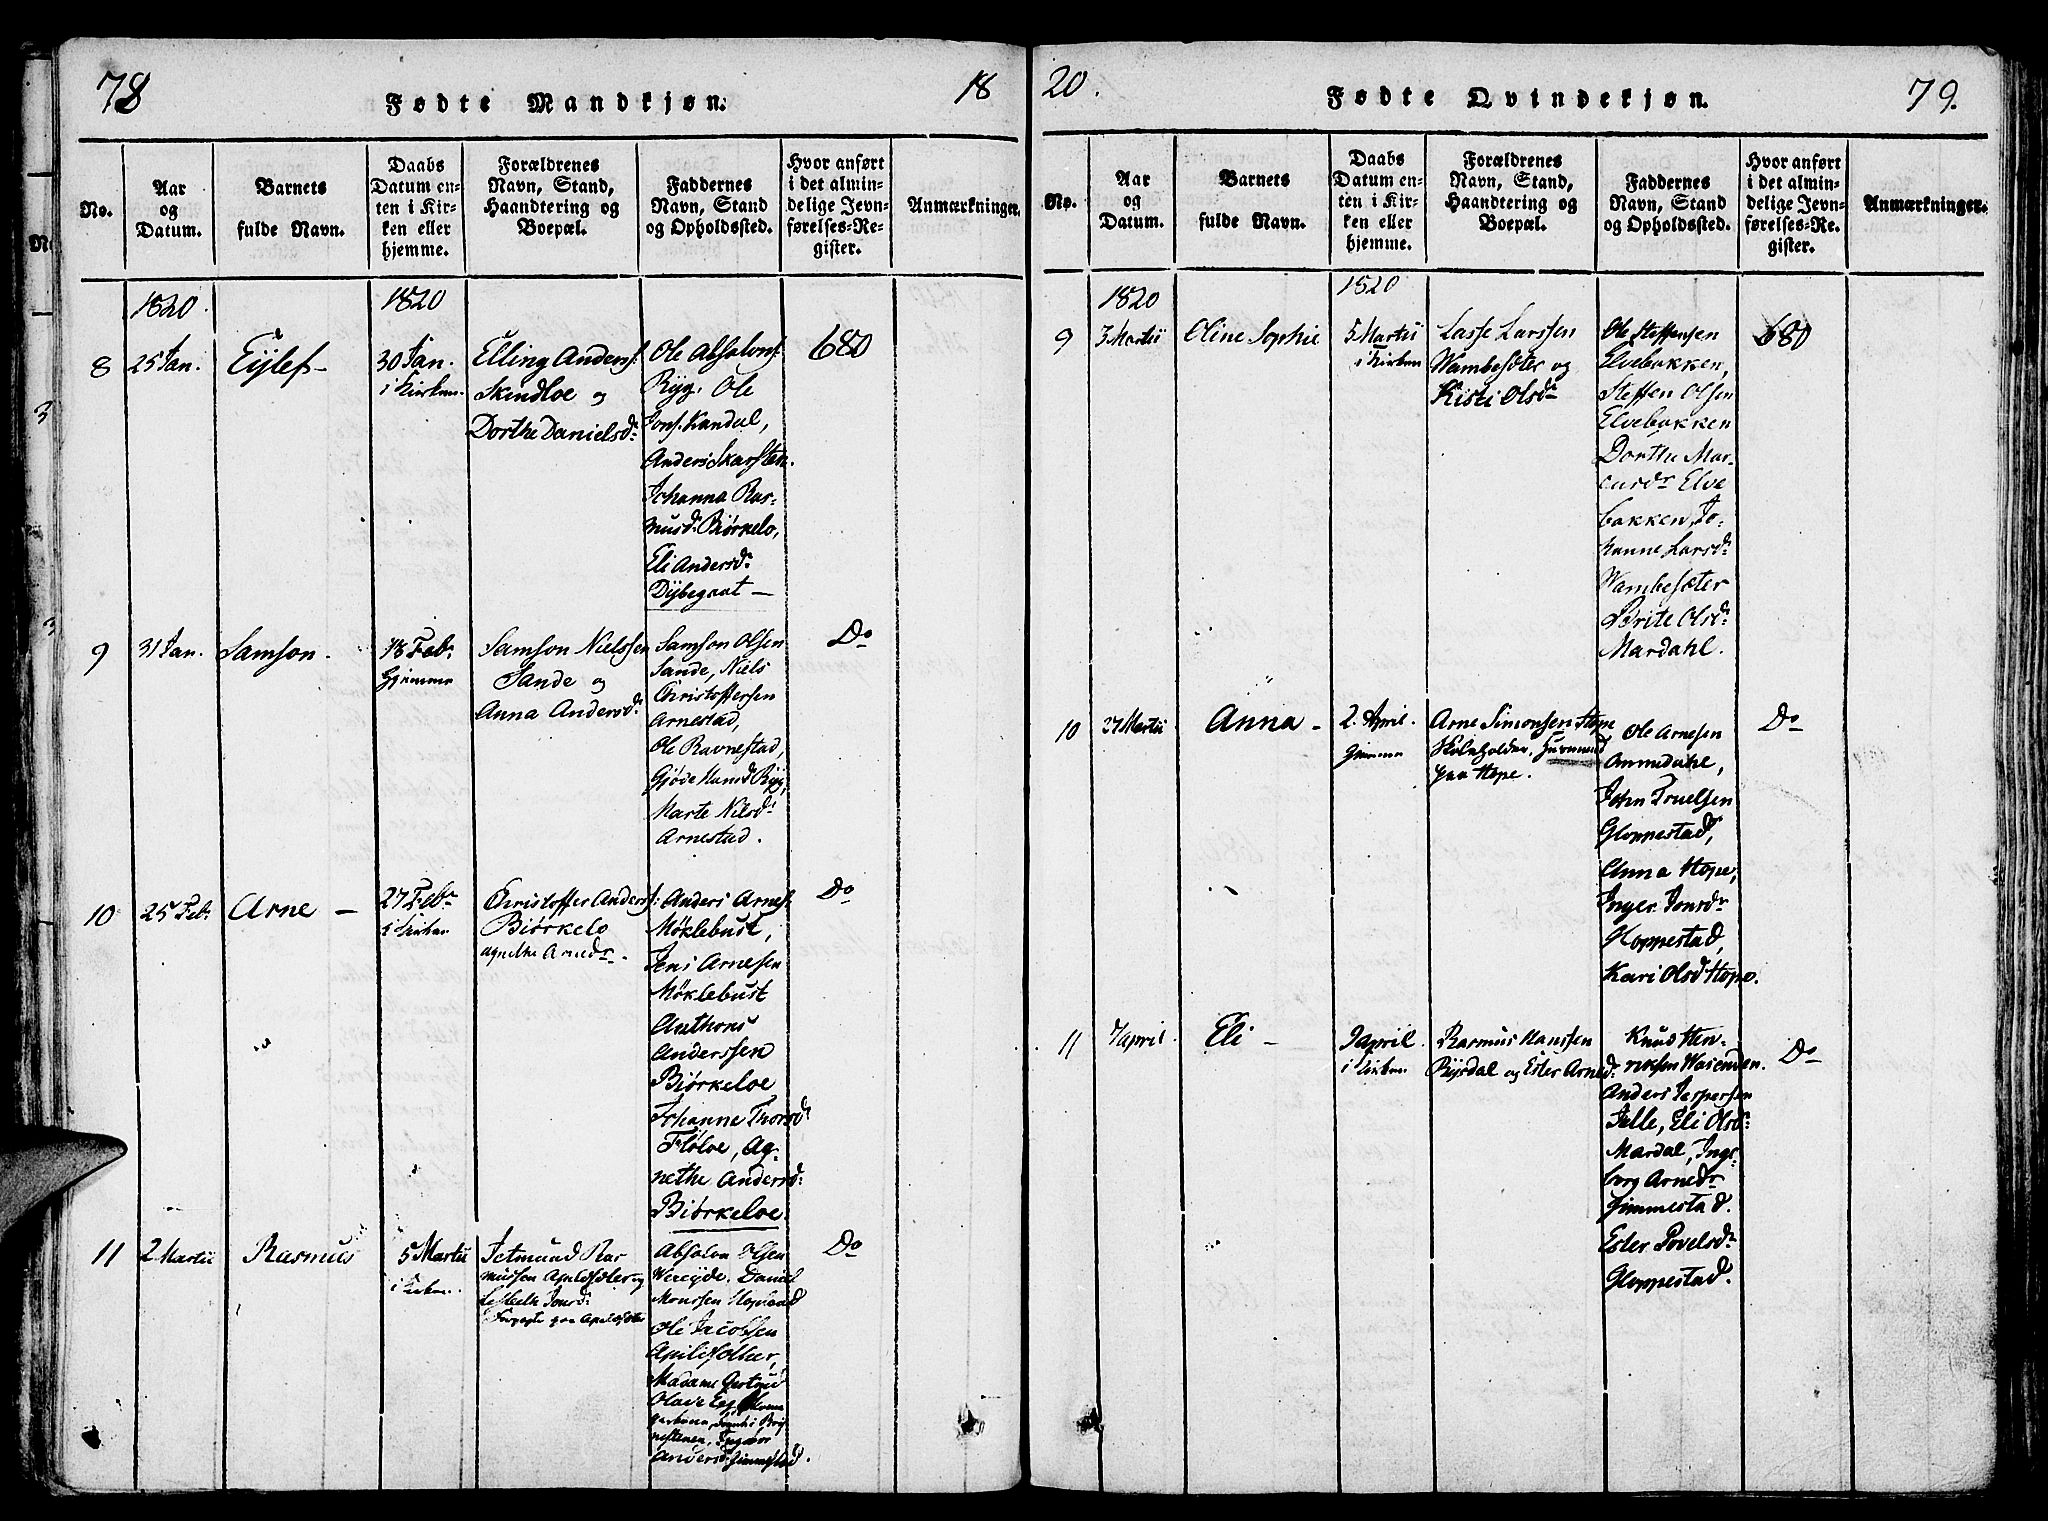 78
Fødte Mandkjøn.
18
No.
Aar
og
Datum.
Barnets
fulde Navn.
Daabs
Datum en-
ten i Kir-
ken eller
hjemme.
Forældrenes
Navn, Stand,
Haandtering og
Boepæl.
Faddernes
Navn, Stand
og Opholdssted.
Hvor anført
i det almin-
delige Jevn-
førelses-Re-
gister.
Anmærkninger.
1820
1820
8
25 Jan.
Eylef
30 Jan.
i Kirken
Elling Anders:
Skindloe og
Dorthe Danielsdr
Ole Absalons:
Ryg, Ole
Jons: Kandal,
Anders Skarsten.
Johanna Ras-
musdr Biørkelo,
Eli Andersdr
Dybegaat
680
9
31 Jan.
Samson.
18 Febr
hjemme
Samson Nielssen
Sande og
Anna Andersdr
Samson Olsen
Sande, Niels
Christoffersen
Arnestad,
Ole Ravnestad,
Gjøde Hansdr Ryg,
Marte Nilsdr
Arnestad.
Do
10
25 Febr
Arne
27 Febr
i Kirken
Christoffer Anders:
Biørkelo
Agnethe Arnedr
Anders Arnes:
Møklebust,
Jens Arnesen
Møklebust
Anthons
Anderssen
Biørkeloe
Johanne Thorsdr
Fløloe, Ag-
nethe Andersdr
Biørkeloe.
Do
11
2 Martii
Rasmus
5 Martii
i Kirken.
Jetmund Ras
mussen Apaldsæter og
Lisbeth Jonsdr
Absalon Olsen
Wereyde. Daniel
Monssen Hopland
Ole Jacobsen
Madame Gertrud
Ingebor
Andersdr Gimmestad.
Do
20.
Fødte Qvindekjøn.
79.
No.
Aar
og
Datum.
Barnets
fulde Navn.
Daabs
Datum en-
ten i Kir-
ken eller
hjemme.
Forældrenes
Navn, Stand,
Haandtering og
Boepæl.
Faddernes
Navn, Stand
og Opholdssted.
Hvor anført
i det almin-
delige Jevn-
førelses-Re-
gister.
Anmærkninger.
1820
1820
9
3 Martii
Oline Sophie
5 Martii
i Kirken
Lasse Larssen
Wambesæter og
Kisti Olsdr
Ole Steffensen
Elvebakken,
Steffen Olsen
Elvebakken
Dorthe Mar-
cusdr Elve
bakken, Jo-
hanne Larsdr
Wambesæter
Brite Olsdr
Mardahl.
680
10
27 Martii
Anna
2. April.
hjemme
Arne Simonsen Hope
Skoleholder,
paa Hope.
Ole Arnesen
Aamedahl,
John Truelsen
Gloppestad,
Anna Hope,
Inger Jonsdr
Gloppestad,
Kari Olsdr Hope.
Do
11
7 April.
Eli
9 April.
i Kirken
Rasmus Hanssen
Ryssdal og Ester Arnedr
Knud Hen-
riksen Wasenden.
Anders Jespersen
Julle, Eli Olsdr
Mardal, Inge-
borg Arnedr
Gimmestad.
Ester Povelsdr
Gloppestad.
Do